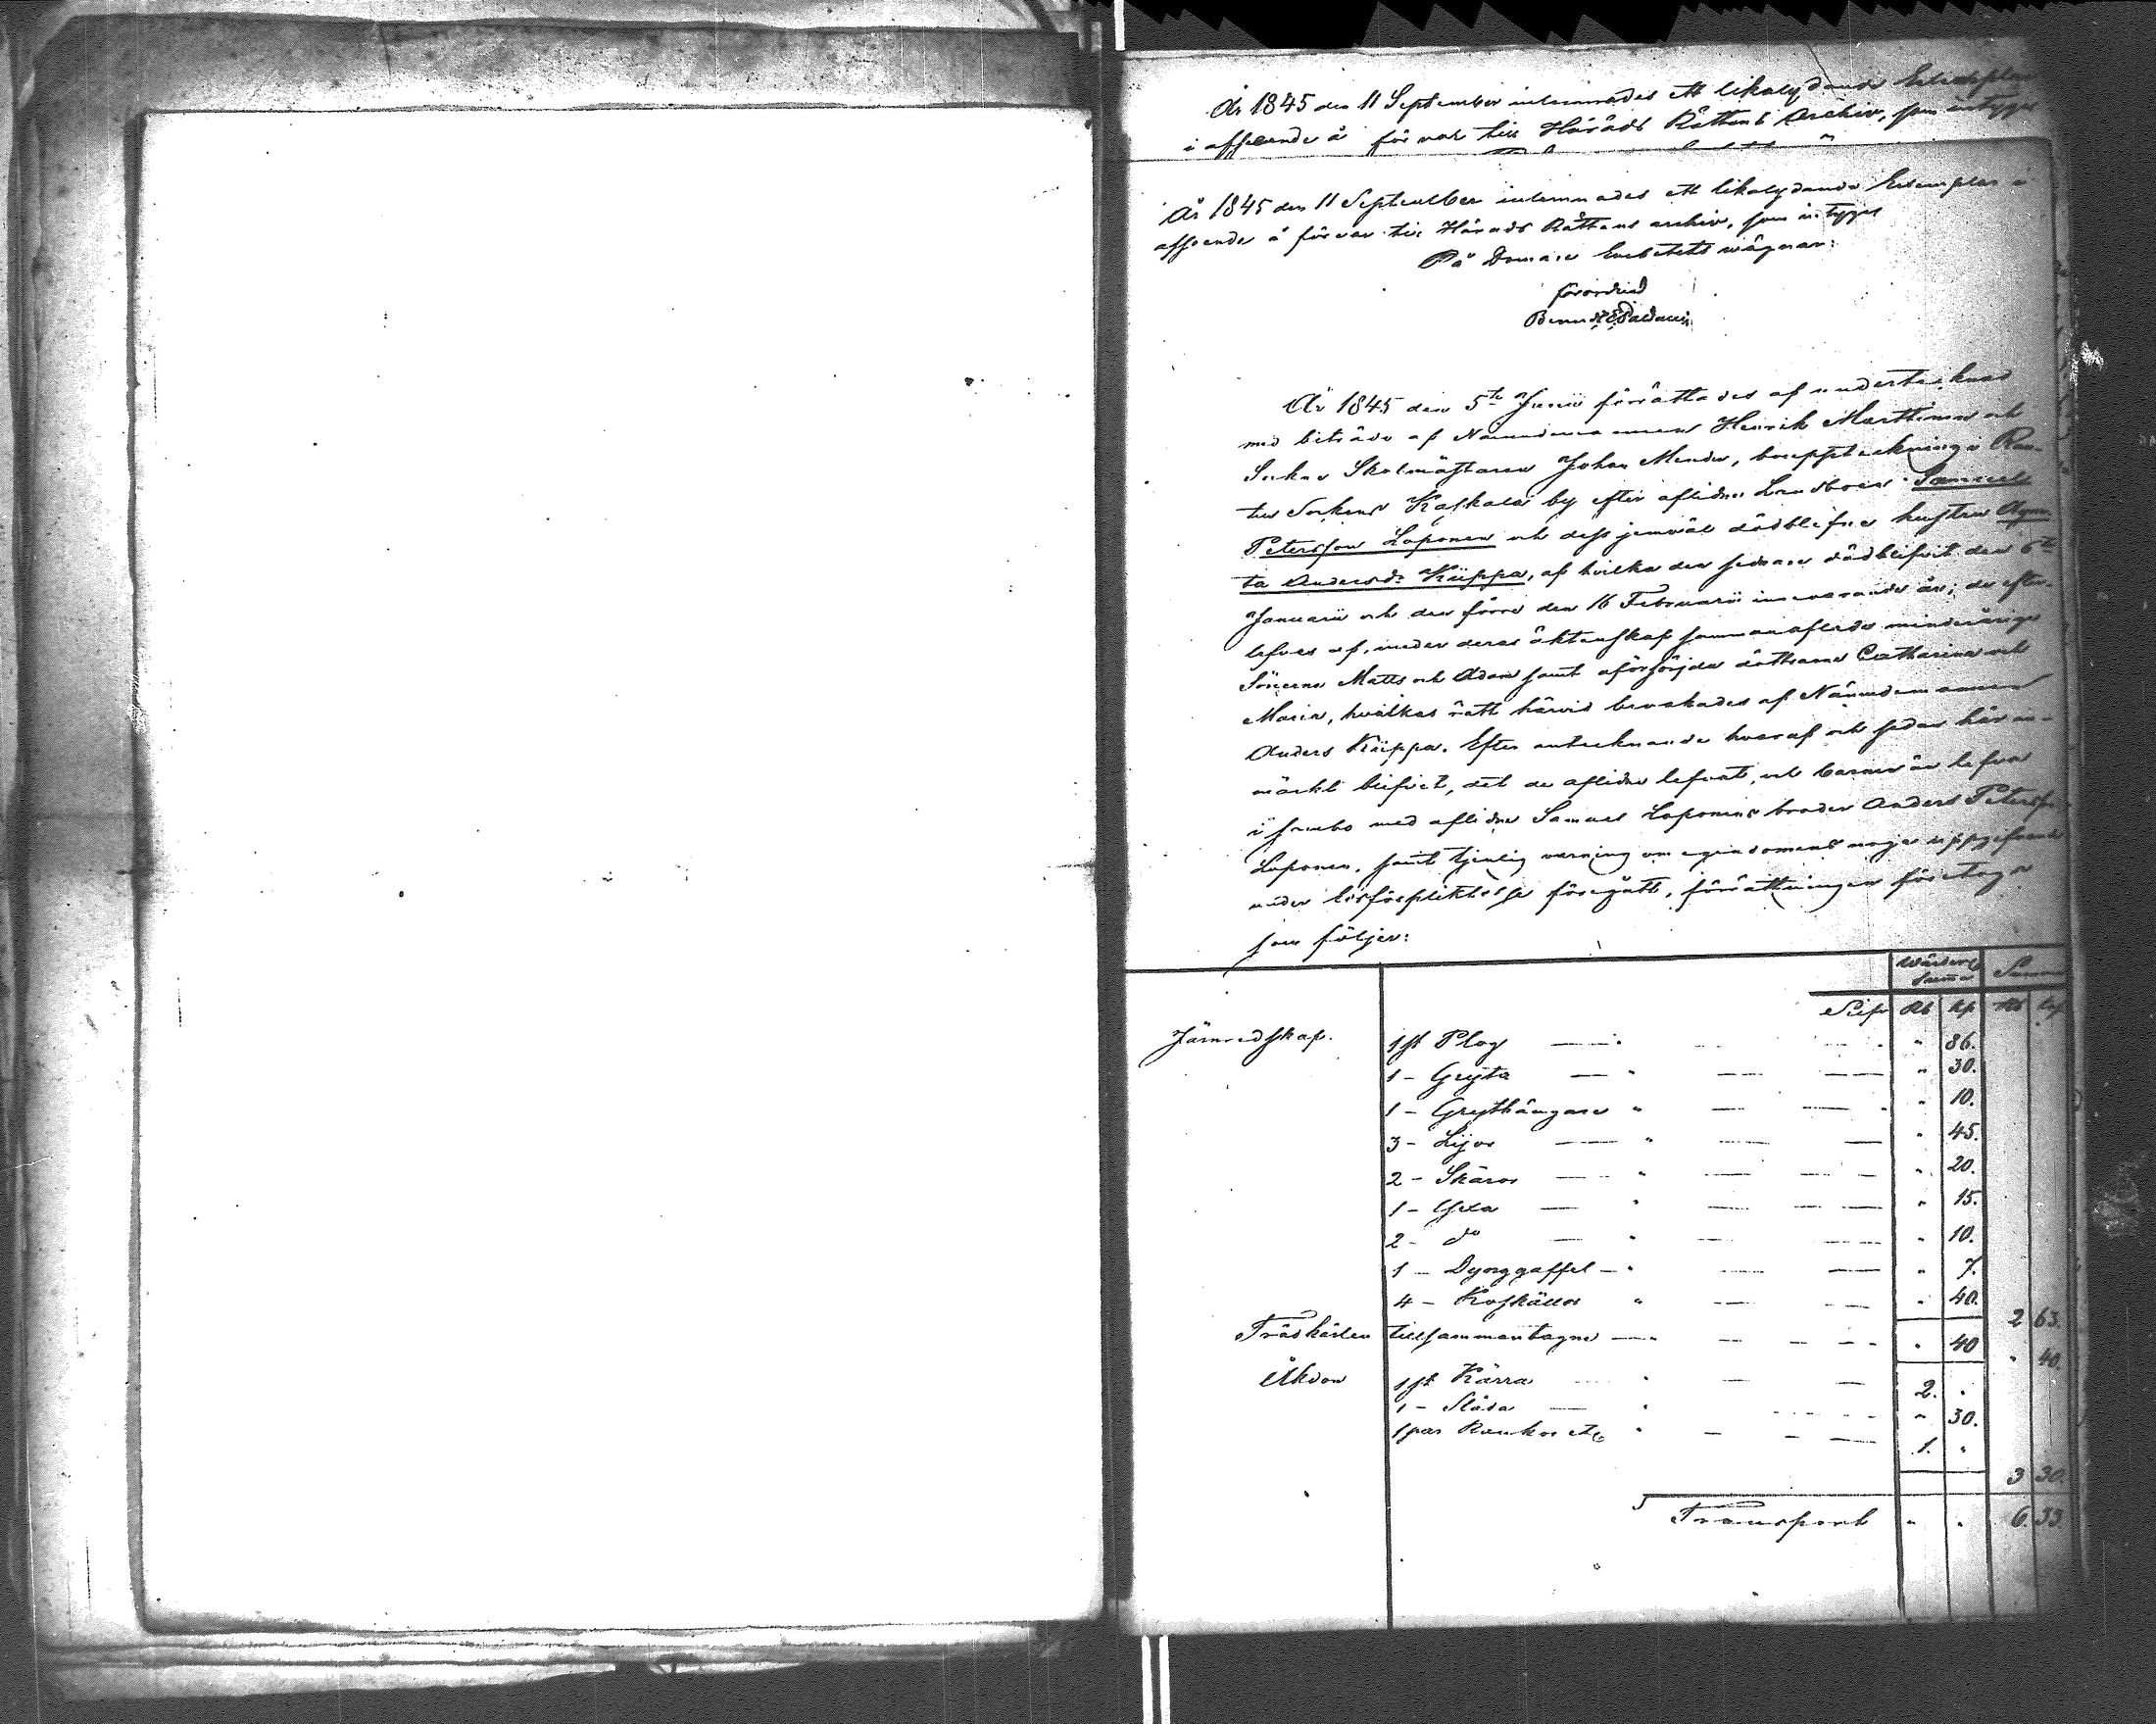 År 1845 den 11 September inlemnades ett likalydande Exemplar
i afseende å förvar till Härads Rättens Archiv, som intygas
År 1845 den 11 September inlemnades ett likalydande Exemplar i
afseende å förvar till Härads Rättens archiv, som intygas
På Domare Embetets wägnar:
förordnad
År 1845 den 5te Junii förrättades af undertecknad
med biträde af Nämndemannen Henrik Marttinen och
Sockne Skolmästaren Johan Mender, bouppteckning i Rau-
tus Sockens Kaskala by efter aflidne Landboen Samuel
Petersson Laponen och dess jemväl dödblefne hustru Agne-
ta Andersdr Kiippa, af hvilka den sednare dödblifvit den 6te
Januarii och den förre den 16 Februarii innevarande år; de efter-
lefves af, under deras äktenskap sammanaflade minderåriga
Sönerna Matts och Adam samt oförsörjda döttrarna Catharina och
Maria, hvilkas rätt härvid bevakades af Nämndemannen
Anders Kiippa. Efter antecknande hvaraf och sedan här an-
märkt blifvit, det de aflidne lefvat, och barnen än lefva
i sambo med aflidne Samuel Laponens broder Anders Peterss
Laponen, samt tjenlig varning om egendomens noga uppgifvande
under edsförpliktelse föregått, förrättningen företogs
som följer:
Wärderg Summa Summa
Silfr Rb Kp Rb Kop
Järnredskap. 1 st Plog — " " 86.
1 – Gryta — " " 30.
1 – Grythängare " " 10.
3 – Lijor — " " 45.
2 – Skäror — " " 20.
1 – Yxa — " " 15.
2 – do — " " 10.
1 – Dynggaffel — " " 7.
4 – " " 40.
2 63.
Träskärlen tillsammantagne — " " 40
" 40.
Åkdon 1 st Kärra " 2. "
1 – Släda — " " 30.
1 par " 1. "
3 30.
Transport " " 6. 33.